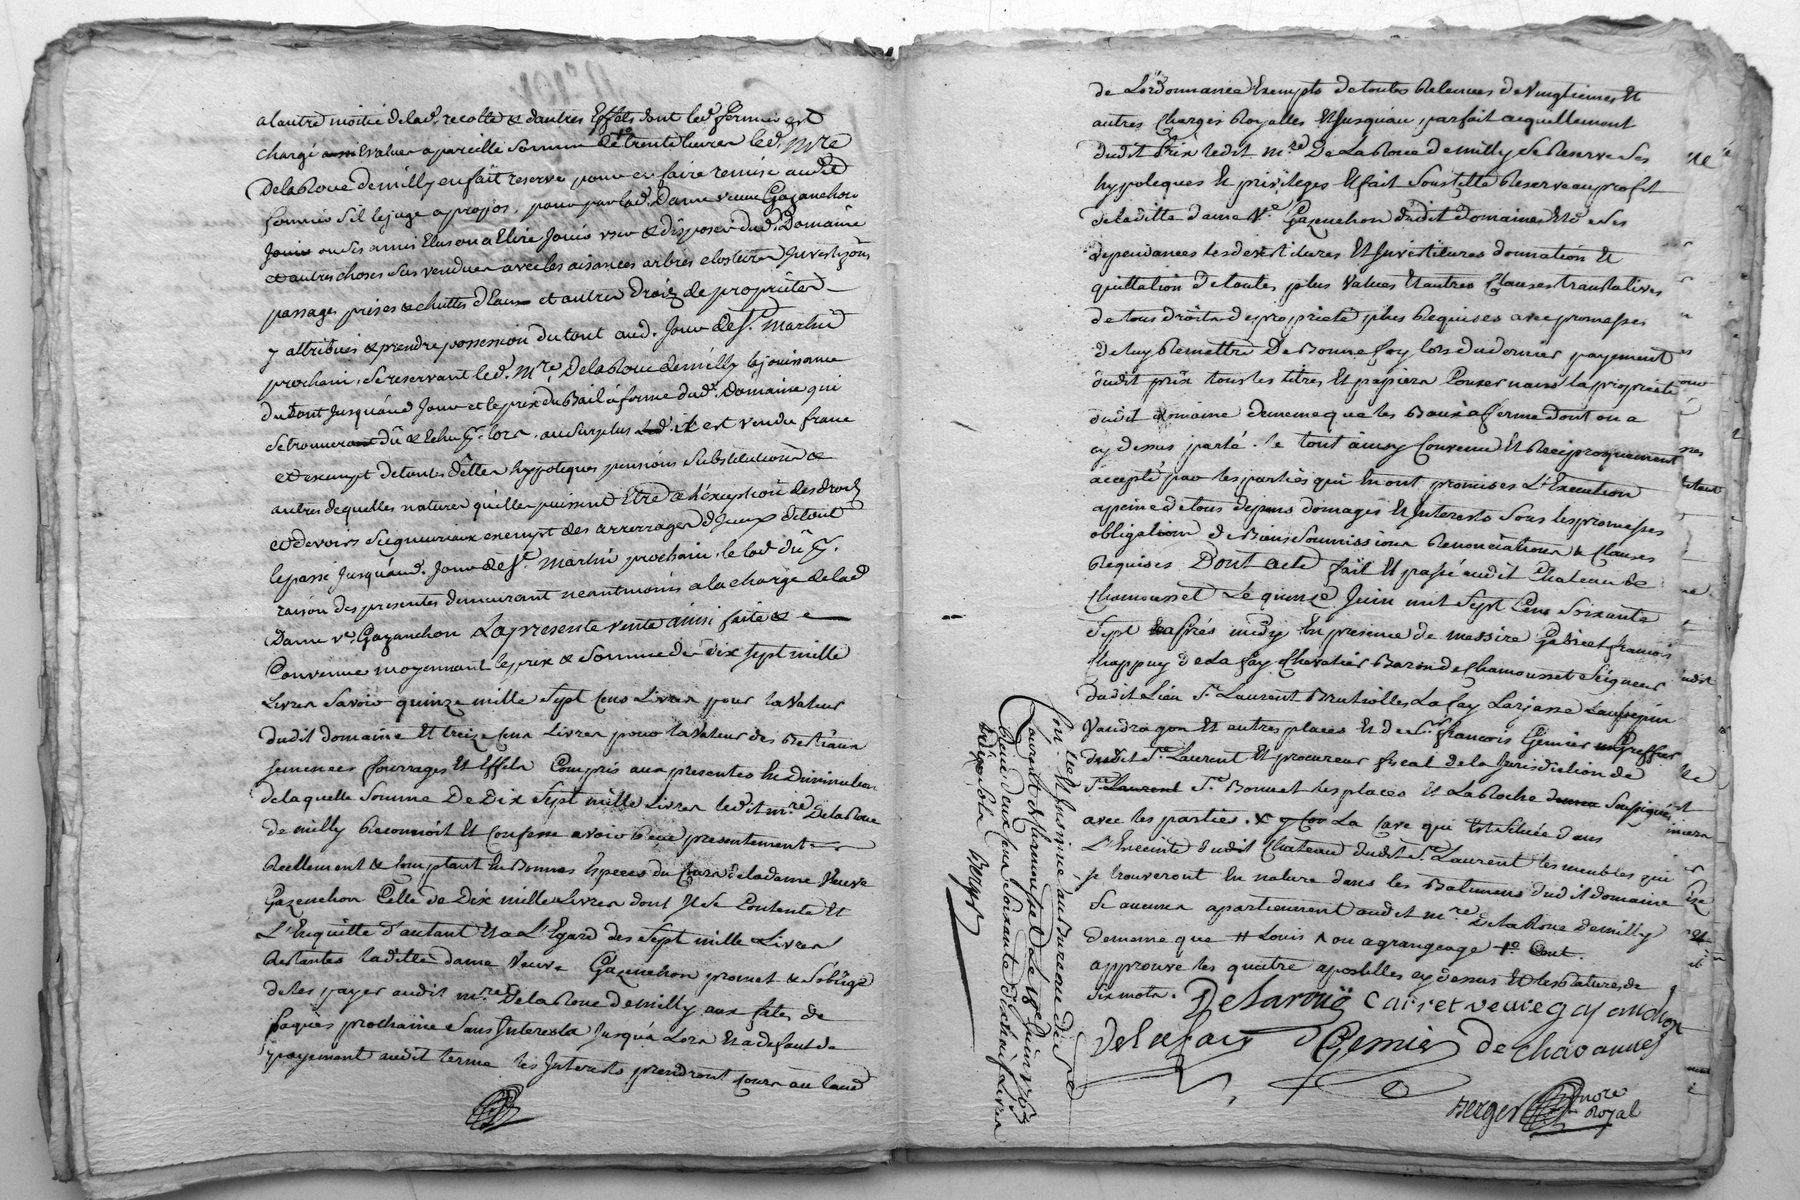 alautre moitié delad. recolte & dautres Effets dont led. fermier est
chargé Evalués apareille somme de trente livres led. Mre
DelaRoue demilly en fait reserve pour en faire remise audit
fermier s'il lejuge apropos, pour par lad. Dame veuve Gazanchon
Jouir ou ses amis Elus ou a Elire Jouir user & disposer dud. Domaine
et autres choses sus vendues avec les aisances arbres clostures
passage prises & chuttes d'Eaux et autres droits de proprietés
y attribués & prendre possession du tout aud. Jour de St. Martin
prochain, se reservant led. Mre. DelaRoue demilly la jouissance
du tout Jusquaud. Jour et le prix du Bail a ferme dud. Domaine qui
se trouvera dû & Echu pr. lors, au surplus il est vendu franc
et exempt de toutes dettes hypoteques pensions substitutions &
autres de quelles natures quelles puissent Etre a l'exeption des droits
et devoirs seigneuriaux exempt des arrerages d'Iceux de tout
le passé Jusquaud. Jour de St. Martin prochain. le lod dû pr.
raison des presentes demeurant neantmoins a la charge de lad.
Dame ve. Gazanchon La presente vente ainsi faite &
Convenue moyennant le prix & somme de dix sept mille
Livres savoir quinze mille sept cens Livres pour la valeur
dudit domaine Et treize cens Livres pour la valeur des Bestiaux
semences fourrages Et Effets Compris aux presentes En diminution
de laquelle somme De Dix sept mille Livres ledit mre. DelaRoue
de milly Reconnoit Et Confesse avoir Reçu presentement
Reellement & Comptant En Bonnes Especes du Cours de la dame Veuve
Gazenchon Celle de Dix mille Livres dont Il se Contente Et
L'Enquitte d'autant Et a L'Egard des sept mille Livres
Restantes ladite dame Veuve Gazenchon promet & s'oblige
de les payer audit mre. DelaRoue demilly aux fetes de
paques prochaine sans Interests Jusqu'a Lors Et a defaut de
payement audit terme les Interests prendront cours au taux
de L'ordonnance Exempts de toutes Retenues de Vingtiemes Et
autres Charges Royalles Et Jusquau parfait acquittement
dudit Prix ledit Mre. De LaRoue demilly se Reserve ses
hypoteques Et privileges Et fait sous telle Reserve au profit
de ladite dame Ve. Gazenchon dudit domaine Et de ses
dependances les devestitures Et Investitures donnation Et
quittation de toutes plus Values Et autres Clauses translatives
de tous droits de propriete plus Requises avec promesses
de luy Remettre De Bonne foy lors du dernier payement
dudit prix tous les titres Et papiers Concernans la propriete
dudit domaine de meme que les Baux a ferme dont on a
cy dessus parlé. le tout ainsy Convenu Et Reciproquement
accepté par les parties qui En ont promises L'Execution
a peine de tous depens domages Et Interests sous les promesses
obligations de Biens soumissions Renonciations & Clauses
Requises Dont acte fait Et passé audit Chateau de
Chamousset Le quinze Juin mil sept Cens Soixante
sept apres midy En presence de messire Gabriel francois
Chappuy de La fay Chevalier Baron de Chamousset Seigneur
dudit Lieu St. Laurent Brulliolles La fay Larjasse
Vaudragon Et autres places Et de Sr. francois Gemier Greffier
dudit St. Laurent Et procureur fiscal de la Jurisdiction de
St. Laurent St. Bonnet les places Et La Roche soussignés
avec les parties. La Cave qui Est située dans
L'Enceinte dudit Chateau dudit St. Laurent les meubles qui
se trouveront En nature dans les Batimens dudit domaine
si aucuns apartiennent audit mre. De la Roue Demilly
de meme que # Louis ^ ou agrangeage
approuvé les quatre apostilles cy dessus Et les Ratures de
six mots. Delarouë Carret veuve gazanchon
Delafay Gemier de Chavannes
Berger Nore Royal
Con. llé Et Insinué au Bureau de St
Laurent de Chamousset Le 18e Juin 1767
Reçu Deux Cens Soixante Dix huit Livres
Berger